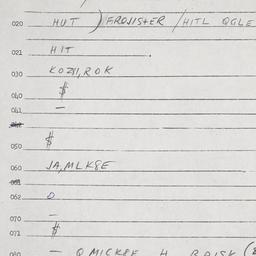 020 HUT ) FROJISTER / HITL QGLE
021 HIT .
030 KOZYI, ROK
040 $
041 —
050 $
060 JA, MLK8E
062 O
070 —
071 $
080 — Q MICK8E H BDISK (